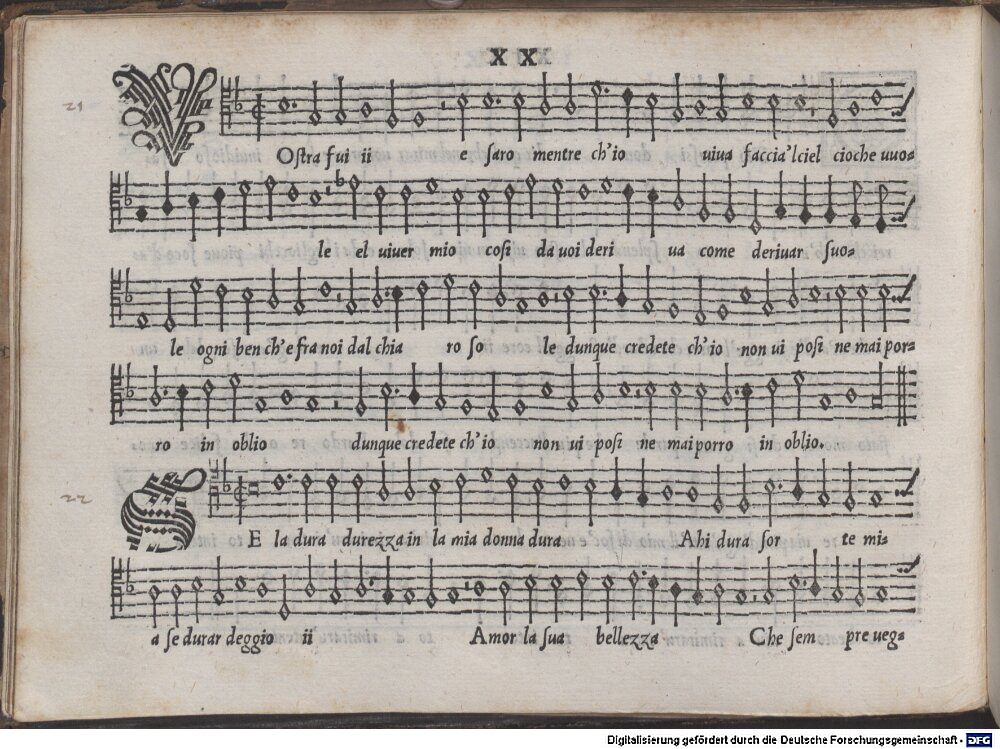 XX
21
VOstra fui ii e saro mentre ch'io uiua faccia'l ciel cioche uuo=
le el uiuer mio cosi da uoi deri ua come deriuar suo=
le ogni ben ch'e fra noi dal chia ro so le dunque credete ch'io non ui posi ne mai por=
ro in oblio dunque credete ch'io non ui posi ne mai porro in oblio.
22
SE la dura durezza in la mia donna dura Ahi dura sor te mi=
a se durar deggio ii Amor la sua bellezza Che sem pre ueg=
Digitalisierung gefördert durch die Deutsche Forschungsgemeinschaft - DFG